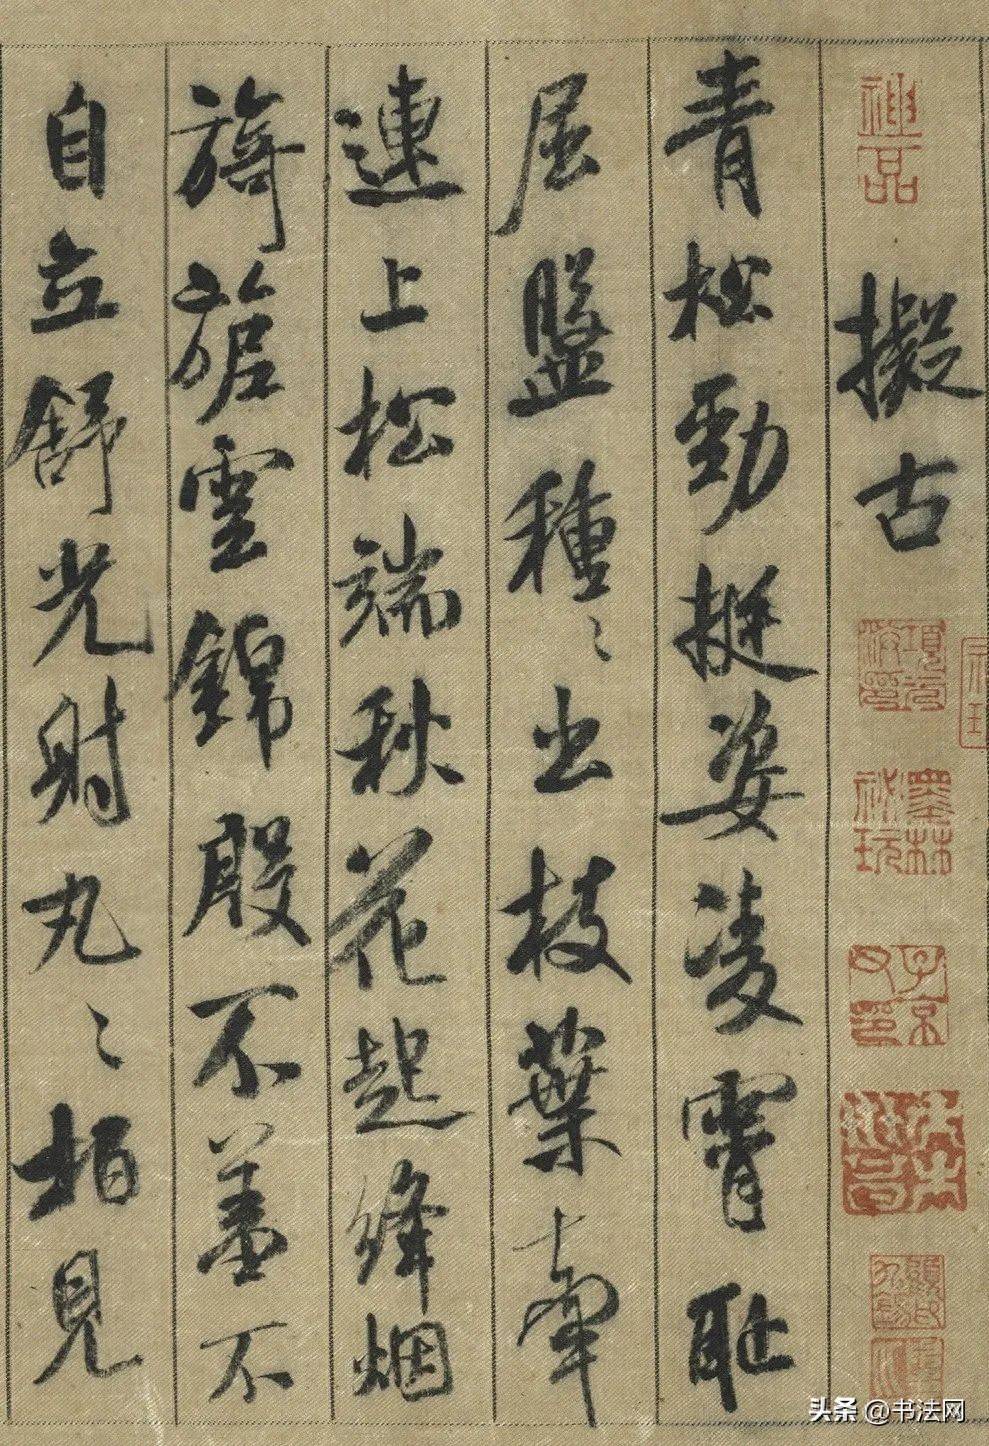 擬古
青松勁挺姿凌霄恥
屈盤種〻出枝葉牽
連上松端秋花起絳烟
旖旎雲錦殷不羞不
自立舒光射丸〻柏見
神品
頭条 @书法网